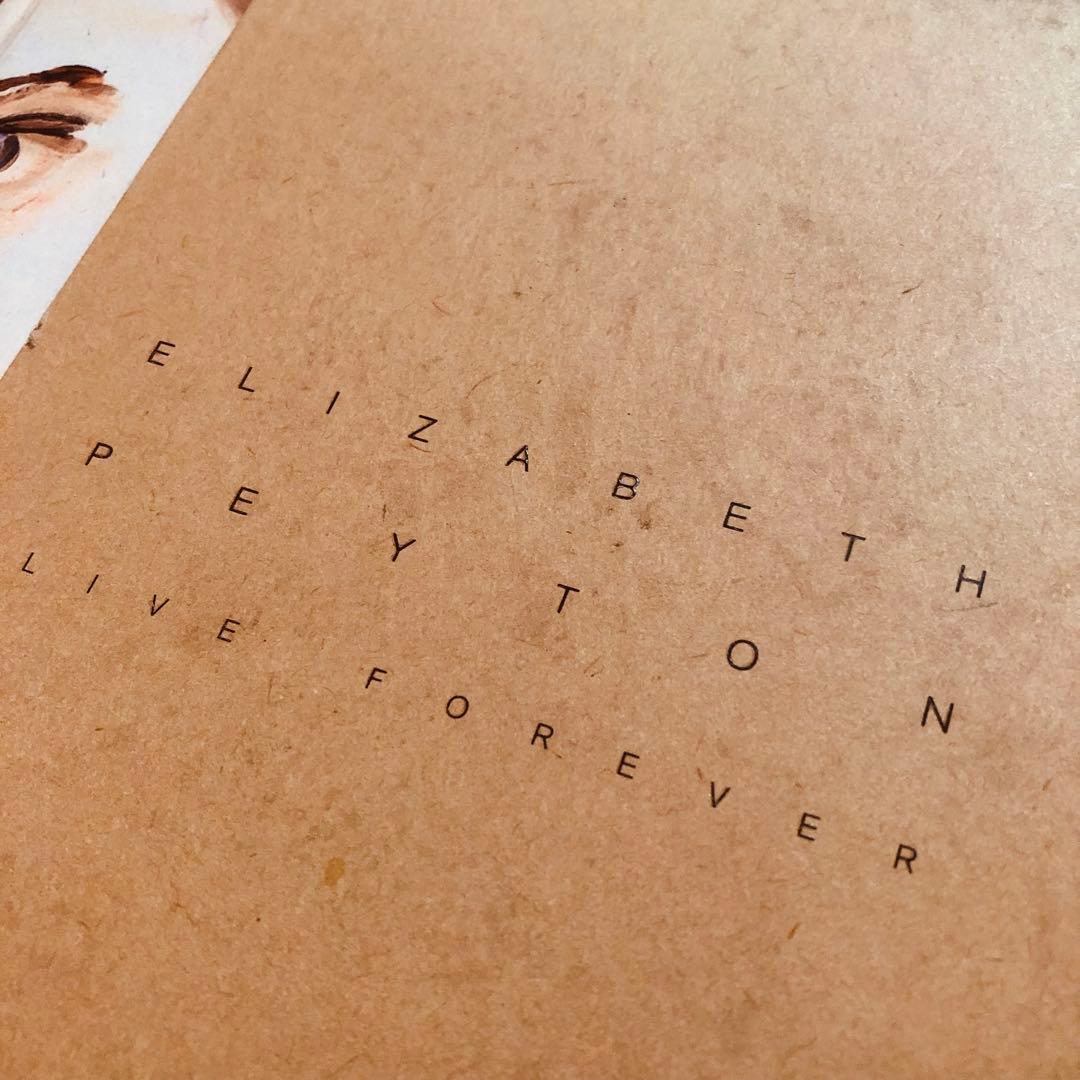 ELIZABETH
PEYTON
LIVE FOREVER